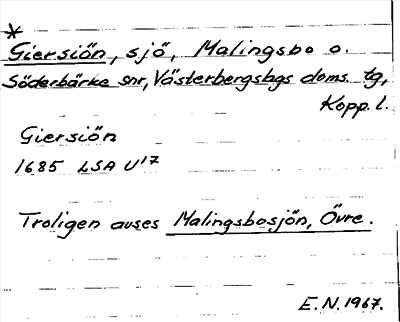 *
Giersiön, sjö, Malingsbo o.
Söderbärke snr, Västerbergslags doms. tg,
Kopp. l.
Giersiön
1685 LSA U¹⁷
Troligen avses Malingsbosjön, Övre.
E.N. 1967.